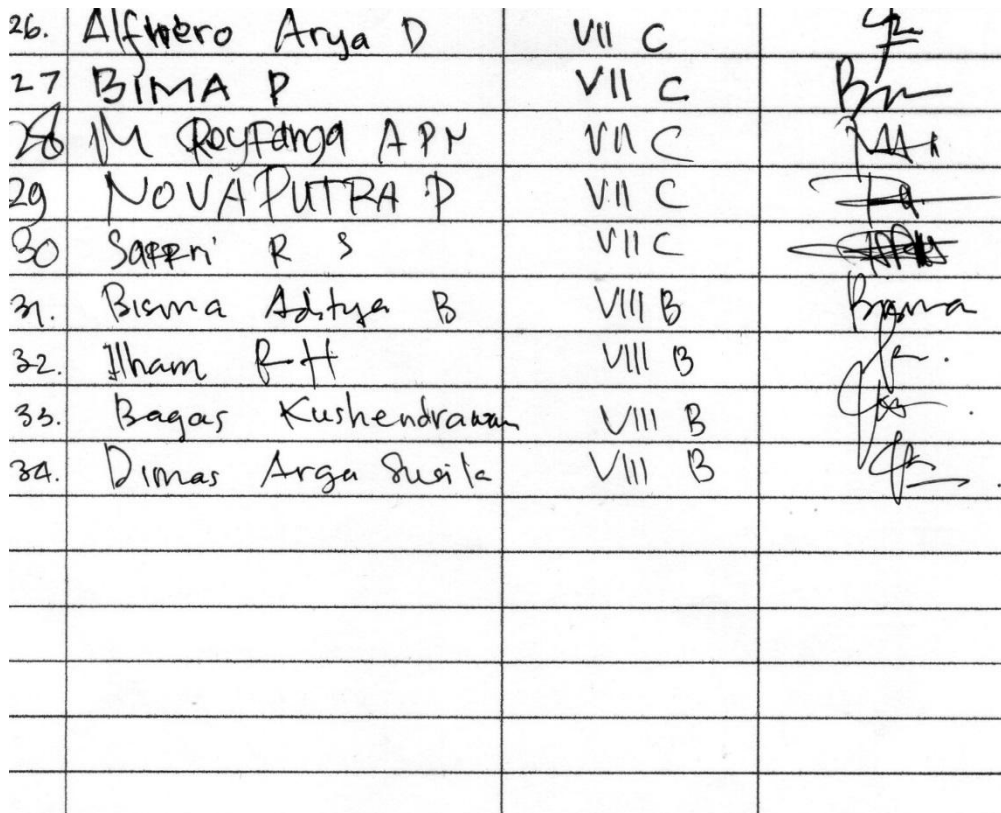 26. Alfhero Arya D VII C
27 BIMA P VII C
28 M Reyfanga APN VII C
29 NOVA PUTRA P VII C
30 R S VII C
31. Bisma Aditya B VIII B Bisma
32. Ilham R H VIII B
33. Bagas Kushendrawan VIII B
34. Dimas Arga Susila VIII B